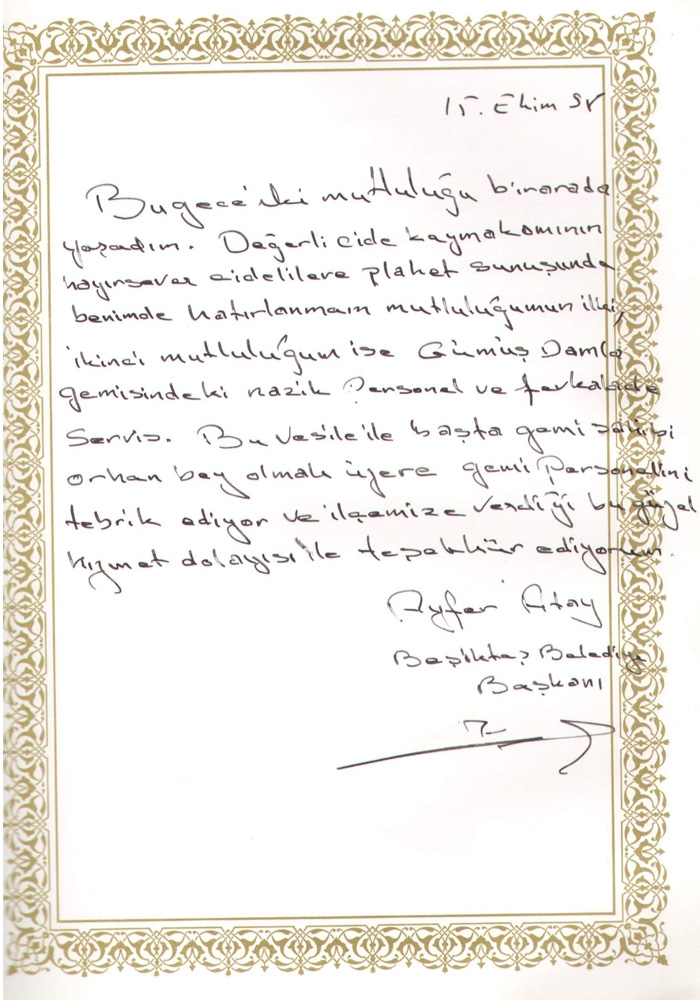 15. Ekim 98
Bu gece iki mutluluğu birarada
yaşadım. Değerli cide kaymakamının
hayırsever cidelilere plaket sunuşunda
benimde hatırlanmam mutluluğumun ilki,
ikinci mutluluğum ise Gümüş Damla
gemisindeki nazik personel ve fevkalade
Servis. Bu vesile ile başta gemi sahibi
orhan bey olmak üzere gemi personelini
tebrik ediyor ve ilçemize verdiği bu güzel
hizmet dolayısı ile teşekkür ediyorum.
Ayfer Atay
Beşiktaş Belediye
Başkanı